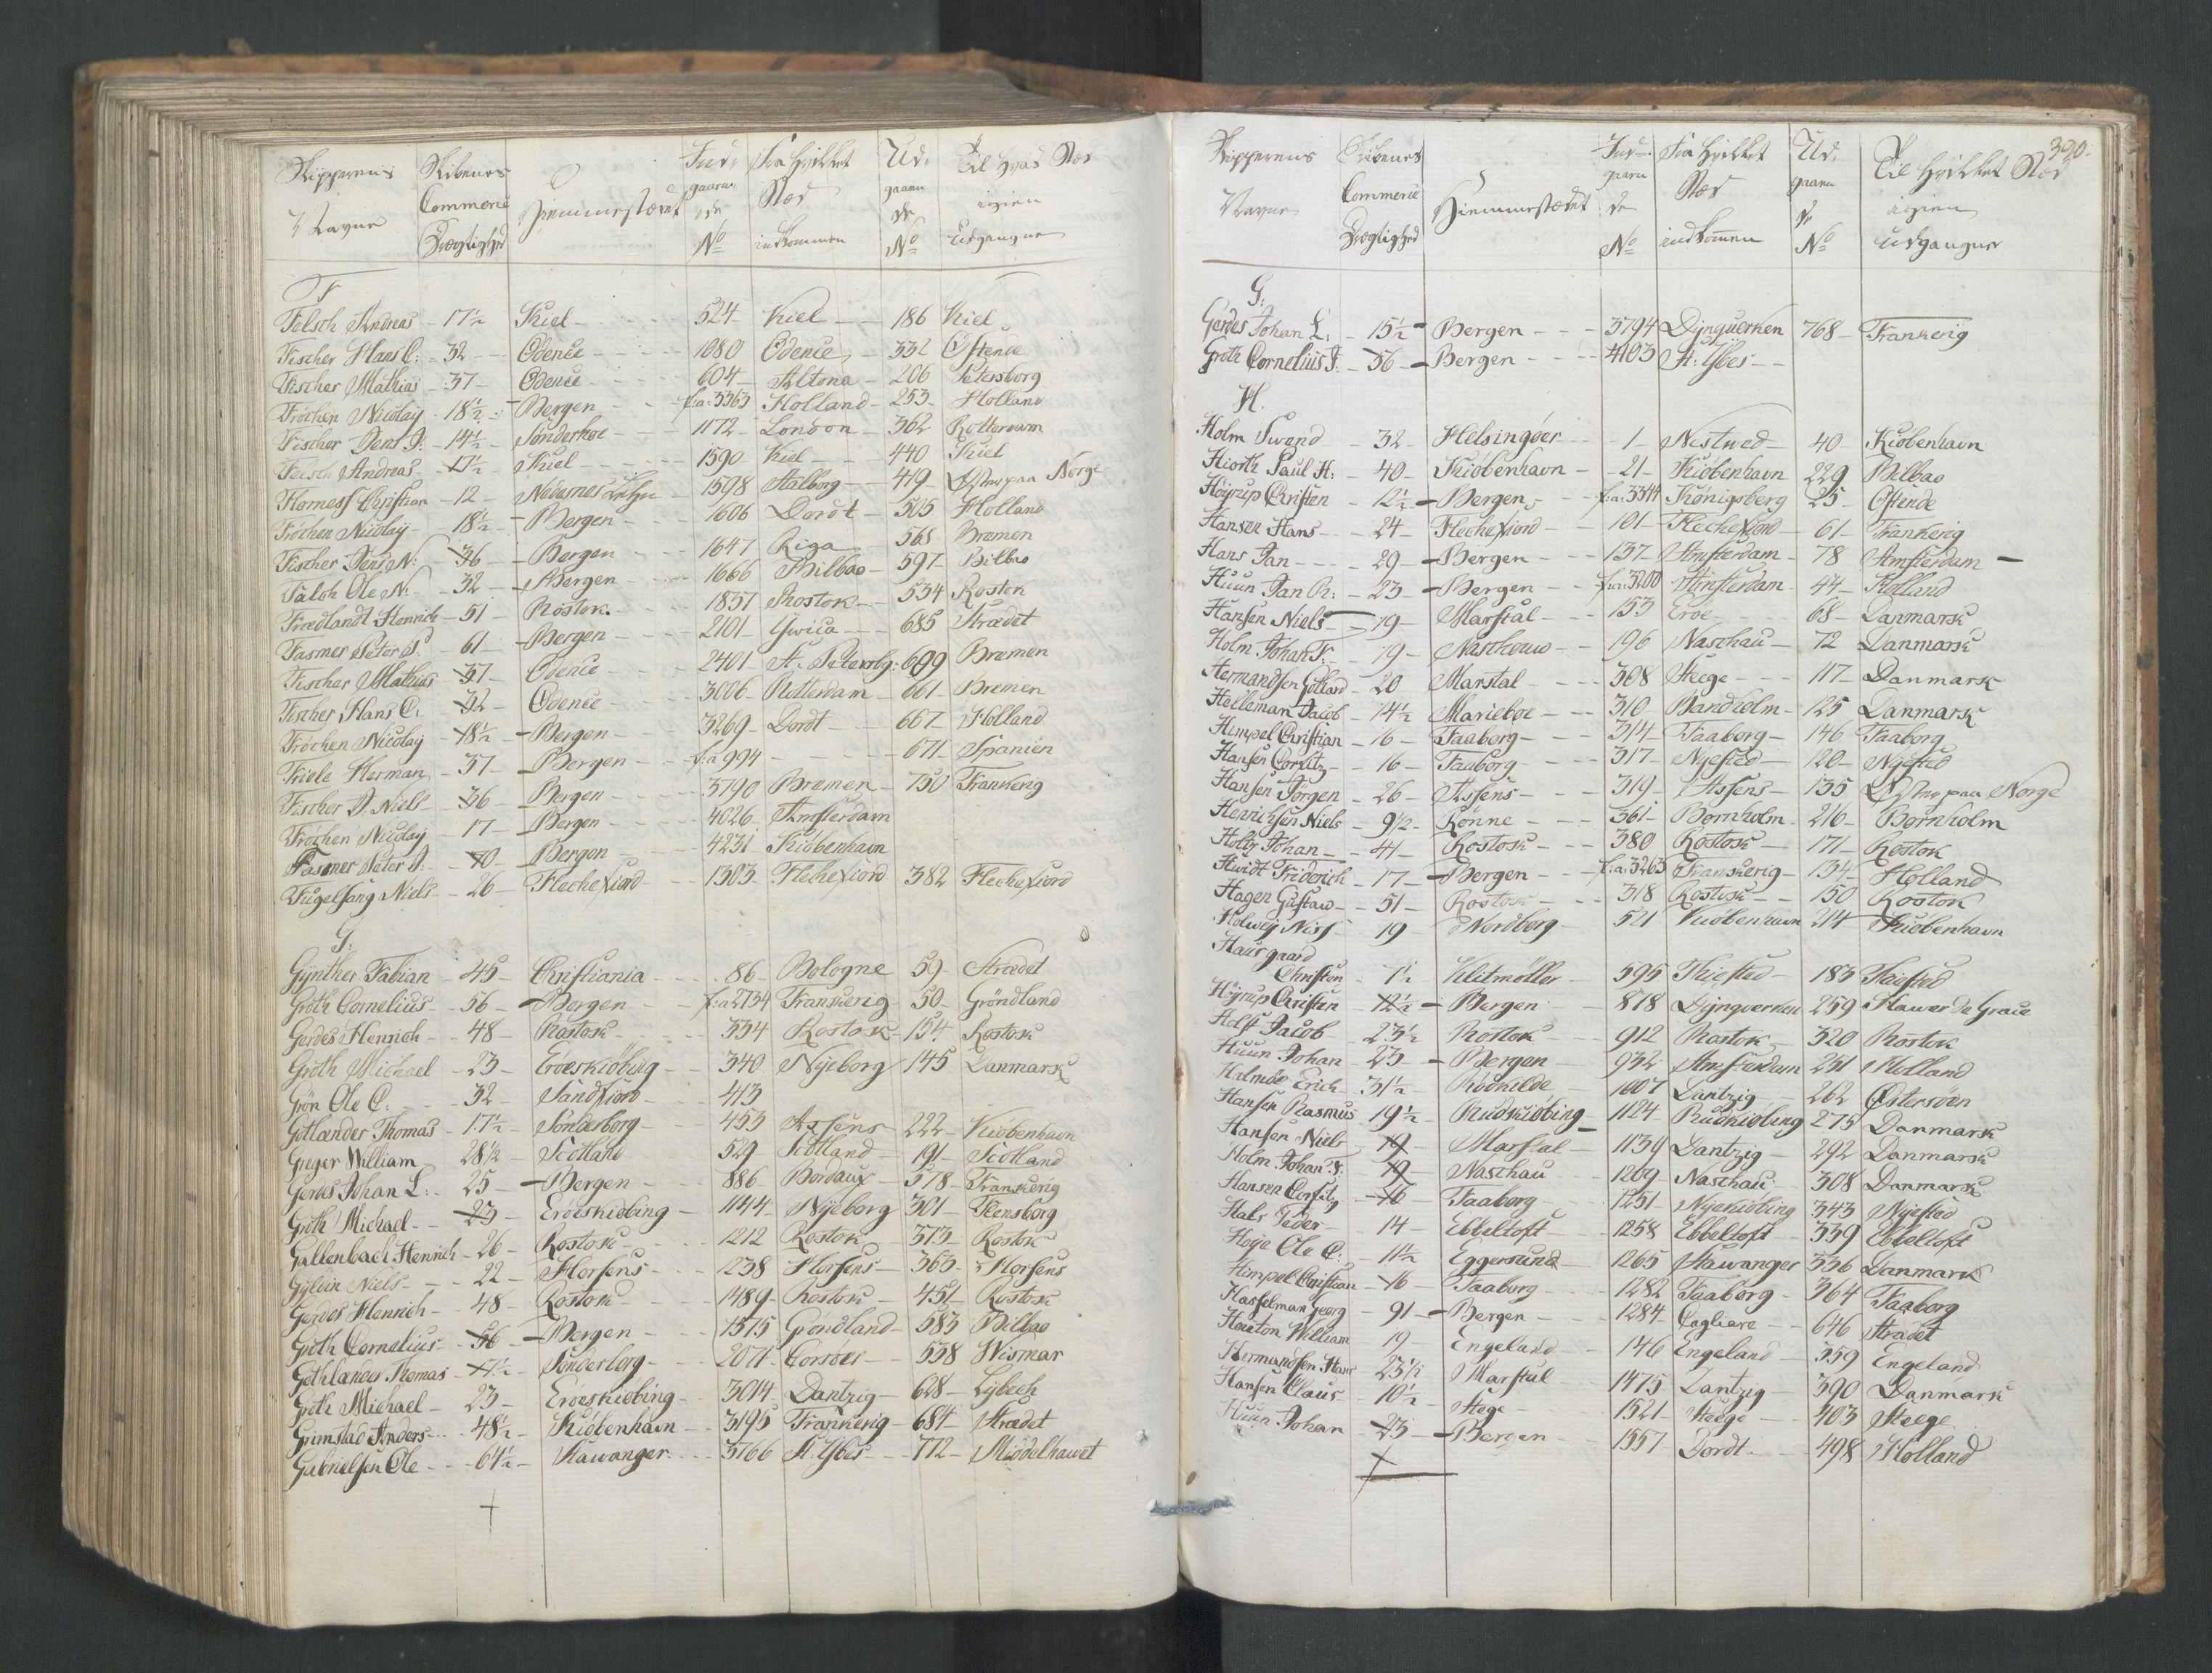 Skipperens Navne Skibenes Commerce Drægtighed Hiemmestædet Ind: gaaende No Fra hvilket Stæd indkommen Ud: gaaen de No Til hvad Stæd igien Udgangne
F
Felsch Andreas - 17½ - Kiel - 524 Kiel - 186 Kiel
Fischer Hans C: - 32 - Odence - 1080 Odence - 332 Ostende
Fischer Mathias - 37 - Odence - 604 - Altona - 206 Petersborg
Fröchen Nicolay - 18½ - Bergen - f:a: 3363 Holland - 253 - Holland
Fischer Jens J: - 14½ - Sönderhoe - 1172 - London - 362 Rotterdam
Felsch Andreas - 17½ - Kiel - 1590 Kiel - 440 Kiel
Flornes Christian - 12 - Nedenes Lehn - 1598 Aalborg - 419 - Østen paa Norge
Fröchen Nicolay - 18½ - Bergen - 1606 Dordt - 505 Holland
Fischer Jens N: - 36 - Bergen - 1647 Riga - 565 Bremen
Falck Ole N: - 32 - Bergen - 1666 Bilbao - 597 - Bilbao
Frædlandt Henrich - 51 - Rostok - 1837 Rostok - 534 Rostok
Fasmer Peter J: - 61 - Bergen - 2101 - Yvica - 685 Strædet
Fischer Mathias - 37 - Odence - 2401 - St. Petersbg: 609 Bremen
Fischer Hans C: - 32 - Odence - 3006 - Rotterdam - 661 - Bremen
Fröchen Nicolay - 18½ - Bergen - 3269 - Dordt - 667 - Holland
Friele Herman - 37 - Bergen - f:a 994 - 671 - Spanien
Fischer J. Niels - 36 - Bergen - 3790 Bremen - 750 Frankerig
Fröchen Nicolay - 17 - Bergen - 4026 - Amsterdam
Fasmer Peter J: - 70 - Bergen - 4231 Kiöbenhavn
Fugelsang Niels - 26 - Flechefiord - 1303 - Flechefiord 382 Flechefiord
G:
Gynther Fabian - 45 - Christiania - 86 - Bologne 59 - Strædet
Groth Cornelius - 56 - Bergen - f:a 2734 Frankerig 50 - Gröndland
Gerdes Henrich - 48 - Rostok - 334 Rostok - 154 Rostok
Groth Michael - 23 - Eröeskiöbing - 340 Nyeborg 145 Danmark
Grön Ole C: - 32 - Sandfiord - 413
Gotlænder Thomas - 17½ - Sönderborg - 453 Assens 222 - Kiöbenhavn
Greger William - 28½ - Scotland - 529 Scotland - 191 - Scotland
Gerdes Johan L: - 25 - Bergen - 886 - Bordaux - 578 - Frankerig
Groth Michael - 23 - Eröeskiöbing - 1144 - Nyeborg 301 - Flensborg
Gallenbach Henrich - 26 - Rostok - 1212 Rostok - 313 - Rostok
Gyldin Niels - 22 - Horsens - 1238 Horsens - 363 - Horsens
Gerdes Henrich - 48 - Rostok - 1489 - Rostok - 451 - Rostok
Groth Cornelius - 56 - Bergen - 1575 Grondland - 583 Bilbao
Gothlander Thomas - 17½ - Sönderborg - 2071 - Corsöer - 558 Wismar
Groth Michael - 23 - Eröeskiöbing - 3014 - Dantzig - 628 - Lybech
Grimstad Anders - 48½ - Kiöbenhavn - 3195 Frankerig - 684 - Strædet
Gabrielsen Ole - 64½ - Stawanger - 3766 St: Ybes - 772 - Middelhavet
320.
Skipperens Navne Skibenes Commerce Drægtighed Hiemmestædet Ind: gaaen de No Fra hvilket Stæd indkommen Ud: gaaen de No Til hvilket Stæd igien udgangner
G:
Gerdes Johan L: - 15½ - Bergen - 3794 Dynquerken 768 - Frankerig
Groth Cornelius J: - 56 - Bergen - 4103 St: Ybes -
H.
Holm Svend - 32 - Helsingöer - 1 - Nestwed - 40 - Kiöbenhavn
Hiorth Paul H: - 40 - Kiöbenhavn - 21 - Kiöbenhavn 229 Bilbao
Höyrup Christen - 12½ - Bergen - f:a: 3344 Königsberg 25 - Ostende
Hansen Hans - 24 - Flechefiord - 101 - Flechefiord - 61 - Frankerig
Hans Jan - 29 - Bergen - 137 - Amsterdam - 78 Amsterdam -
Huun Jan R: - 23 - Bergen - f:a: 3200 Amsterdam - 44 - Holland
Hansen Niels - 19 - Marstal - 153 Eroe - 68 - Danmark
Holm Johan F: - 19 - Nasthouw - 196 Naschau - 72 Danmark
Hermandsen Gotlard - 20 Marstal - 308 Steege - 117 - Danmark
Helleman Jacob - 14½ Marieboe - 310 Bandholm - 125 Danmark
Himpel Christian - 16 - Faaborg - 314 - Faaborg - 146 Faaborg
Hansen Corfitz - 16 - Faaborg - 317 - Nyested - 120 - Nyested
Hansen Jörgen - 26 - Assens - 319 - Assens - 135 Østen paa Norge
Henrichsen Niels - 9½ - Rönne - 361 - Bornholm - 216 - Bornholm
Holtz Johan - 41 - Rostok - 380 Rostok - 171 - Rostok
Hvidt Friderich - 17 - Bergen - f:a: 3263 Frankerig - 134 - Holland
Hagen Gustaw - 51 - Rostok - 318 Rostok - 150 Rostok
Holwig Niss - 19 - Nordborg - 521 Kiobenhavn 214 Kiöbenhavn
Haursgaard
Christen - 7½ Klitmöller - 595 Thiested - 183 Thisted
Höyrup Christen - 12½ - Bergen - 878 Dynqverken 259 Hawer De Grace
Holst Jacob - 23½ Rostok - 912 Rostok - 320 Rostok
Huun Johan - 23 - Bergen - 932 Amsterdam 251 Holland
Holmbo Erich - 31½ - Roskilde - 1007 Dantzig - 262 Østersöen
Hansen Rasmus 19½ - Rudkiöbing - 1124 - Rudkiobing 275 Danmark
Hansen Niels - 19 - Marstal - 1139 Dantzig - 292 Danmark
Holm Johan F: - 19 - Naschau - 1209 Naschau - 308 Danmark
Hansen Corfitz - 16 - Faaborg - 1251 - Nyekiobing 343 Nyested
Hals Peder - 14 - Ebbeltoft - 1258 Ebbeltoft - 339 Ebbeltoft
Höye Ole C: - 11½ - Eggersund - 1265 Stawanger 336 Danmark
Himpel Christian - 16 - Faaborg - 1282 Faaborg - 364 Faaborg
Hasselman Georg - 91 - Bergen - 1284 - Cagliare - 646 Strædet
Houston William 19 - Engeland - 146 Engeland - 359 Engeland
Hermandsen Hans 23½ Marstal - 1475 Dantzig - 390 Danmark
Hansen Claus - 10½ - Stege - 1521 - Steege - 403 Steege
Huun Johan - 23 - Bergen - 1557 Dordt - 498 Holland